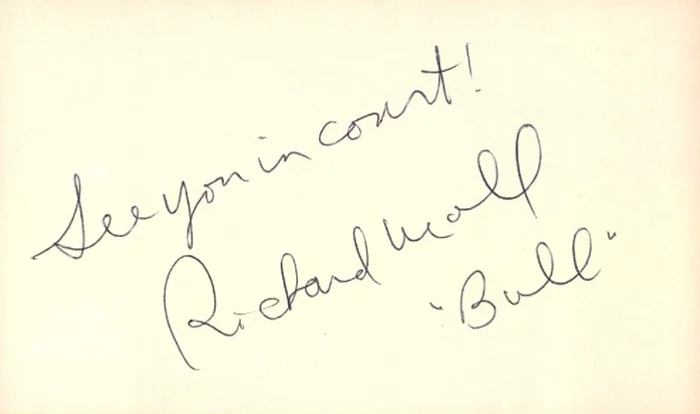 See you in court!
Richard Moll
"Bull"